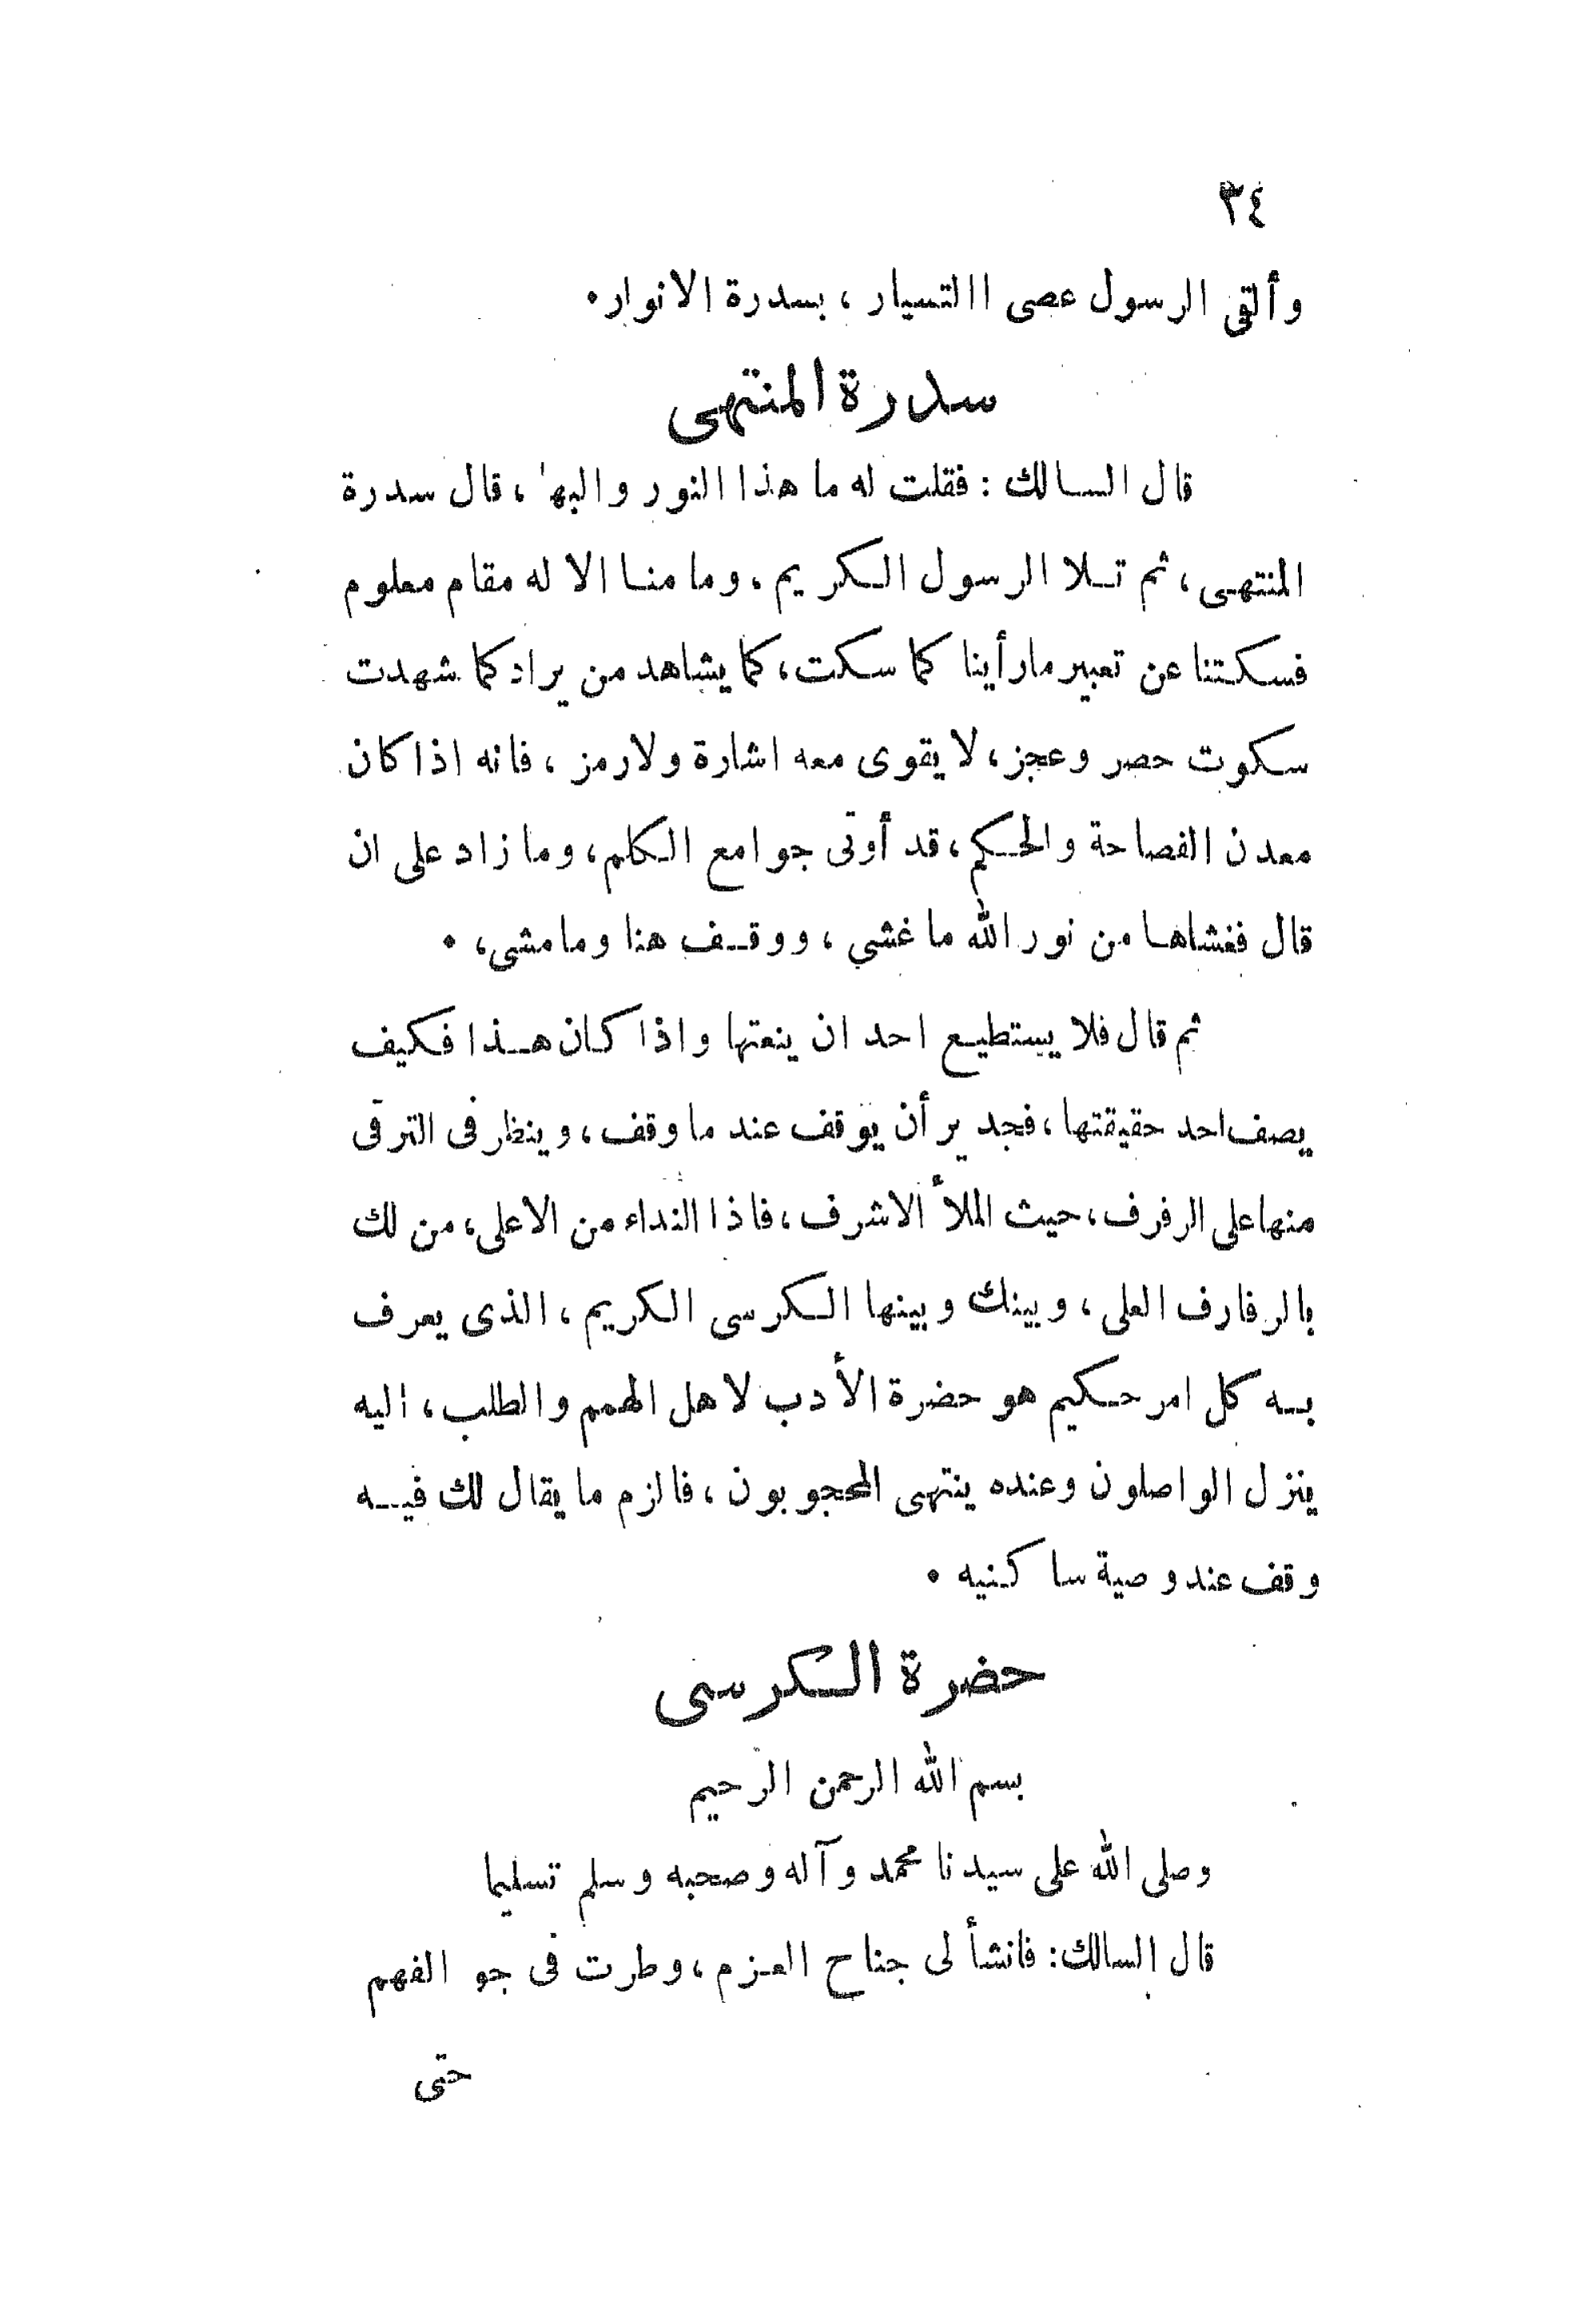 ٣٤
وألقى الرسول عصى االتسيار ، بسدرة الانوار.
سدرة المنتهى
قال السالك : فقلت له ما هذا النور والبها ، قال سدرة
المنتهى ، ثم تلا الرسول الكريم ، وما منا الا له مقام معلوم
فسكتنا عن تعبير مارأينا كما سكت ، كما يشاهد من يراد كما شهدت
سكوت حصر وعجز ، لا يقوى معه اشارة ولارمز ، فانه اذا كان
معدن الفصاحة والحكم ، قد أوتى جوامع الكلم ، وما زاد على ان
قال فغشاها من نور الله ما غشي ، ووقف هنا ومامشى ، .
ثم قال فلا يستطيع احد ان ينعتها واذا كان هذا فكيف
يصف احد حقيقتها ، فجدير أن يوقف عند ما وقف ، وينظر فى الترقى
منها على الرفرف ، حيث الملأ الاشرف ، فاذا النداء من الاعلى ، من لك
بالرفارف العلى ، وبينك وبينها الكرسى الكريم ، الذى يعرف
به كل امر حكيم هو حضرة الأدب لاهل الهمم والطلب ، اليه
ينزل الواصلون وعنده ينتهى المحجوبون ، فالزم ما يقال لك فيه
وقف عند وصية ساكنيه .
حضرة الكرسى
بسم الله الرحمن الرحيم
وصلى الله على سيدنا محمد وآله وصحبه وسلم تسليما
قال السالك : فانشأ لى جناح العزم ، وطرت فى جو الفهم
حتى